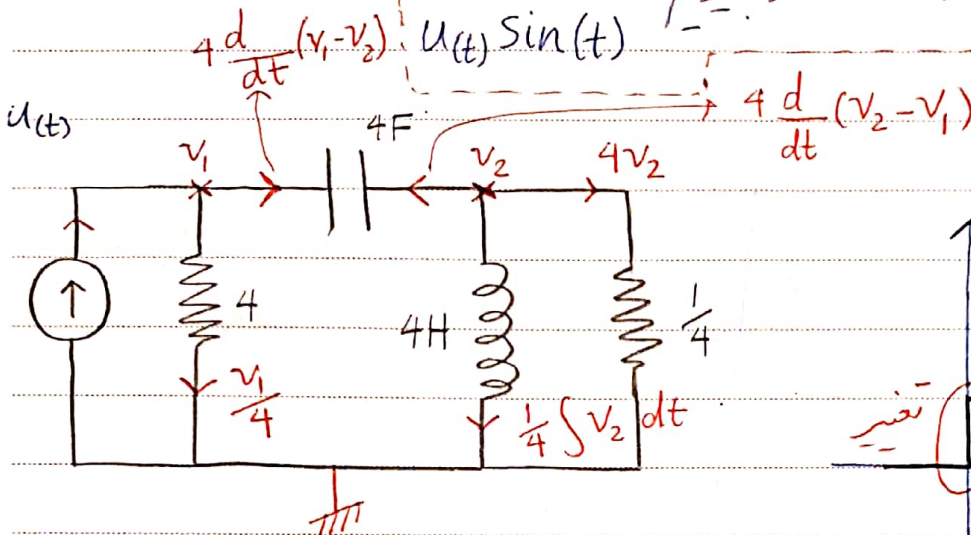 4 d/dt (v₁-v₂)
u(t) Sin(t)
4 d/dt (v₂-v₁)
u(t)
4F
v₁
v₂
4v₂
4
4H
1/4
v₁/4
1/4 ∫ v₂ dt